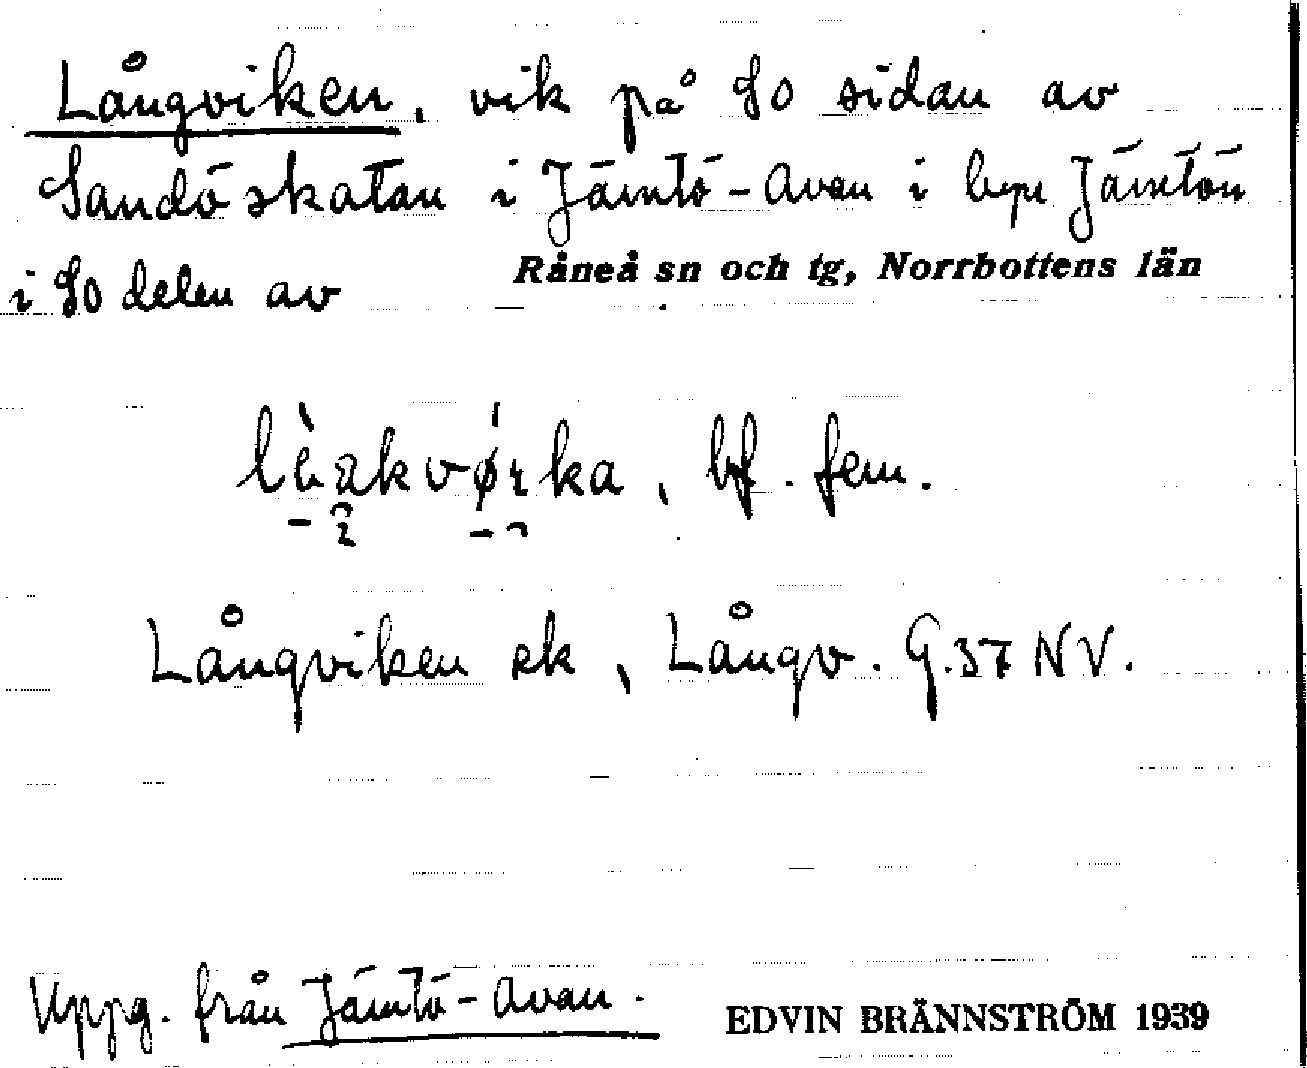 Långviken, vik på SO sidan av
Sandöskatan i Jämtö-Avan i bye Jämtön
i SO delen av Råneå sn och tg, Norrbottens län
bf. fem.
Långviken ek, Långv. G.37 NV.
Uppg. från Jämtö-Avan.
EDVIN BRÄNNSTRÖM 1939